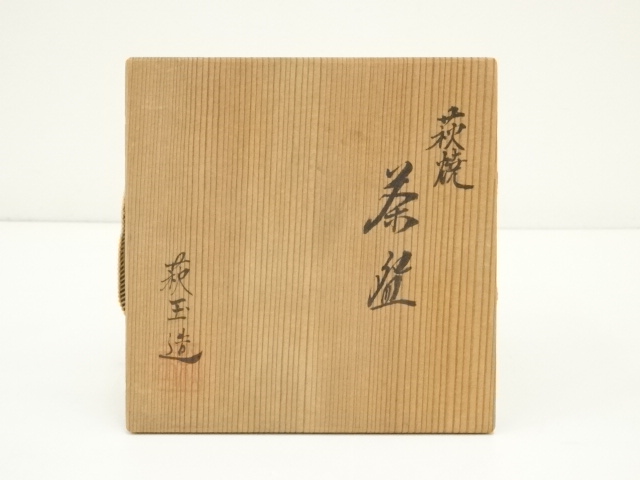 萩焼
茶盌
萩玉造